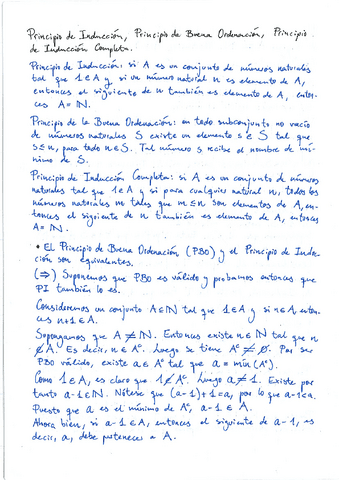 Principio de Inducción, Principio de Buena Ordenación, Principio
de Inducción Completa.
Principio de Inducción: si A es un conjunto de números naturales
tal que 1∈A y si un número natural n es elemento de A,
entonces el siguiente de n también es elemento de A, enton-
ces A = ℕ.
Principio de la Buena Ordenación: en todo subconjunto no vacío
de números naturales S existe un elemento s∈S tal que
s≤n, para todo n∈S. Tal número s recibe el nombre de mí-
nimo de S.
Principio de Inducción Completa: si A es un conjunto de números
naturales tal que 1∈A y si para cualquier natural n, todos los
números naturales m tales que m≤n son elementos de A, en-
tonces el siguiente de n también es elemento de A, entonces
A = ℕ.
• El Principio de Buena Ordenación (PBO) y el Principio de Induc-
ción son equivalentes.
(⇒) Suponemos que PBO es válido y probamos entonces que
PI también lo es.
Consideremos un conjunto A⊆ℕ tal que 1∈A y si n∈A, enton-
ces n+1∈A.
Supongamos que A ≠ ℕ. Entonces existe n∈ℕ tal que n
∉A. Es decir, n∈Aᶜ. Luego se tiene Aᶜ ≠ ∅. Por ser
PBO válido, existe a∈Aᶜ tal que a = mín(Aᶜ).
Como 1∈A, es claro que 1∉Aᶜ. Luego a≠1. Existe por
tanto a-1∈ℕ. Nótese que (a-1)+1=a, por lo que a-1<a.
Puesto que a es el mínimo de Aᶜ, a-1∈A.
Ahora bien, si a-1∈A, entonces el siguiente de a-1, es
decir, a, debe pertenecer a A.